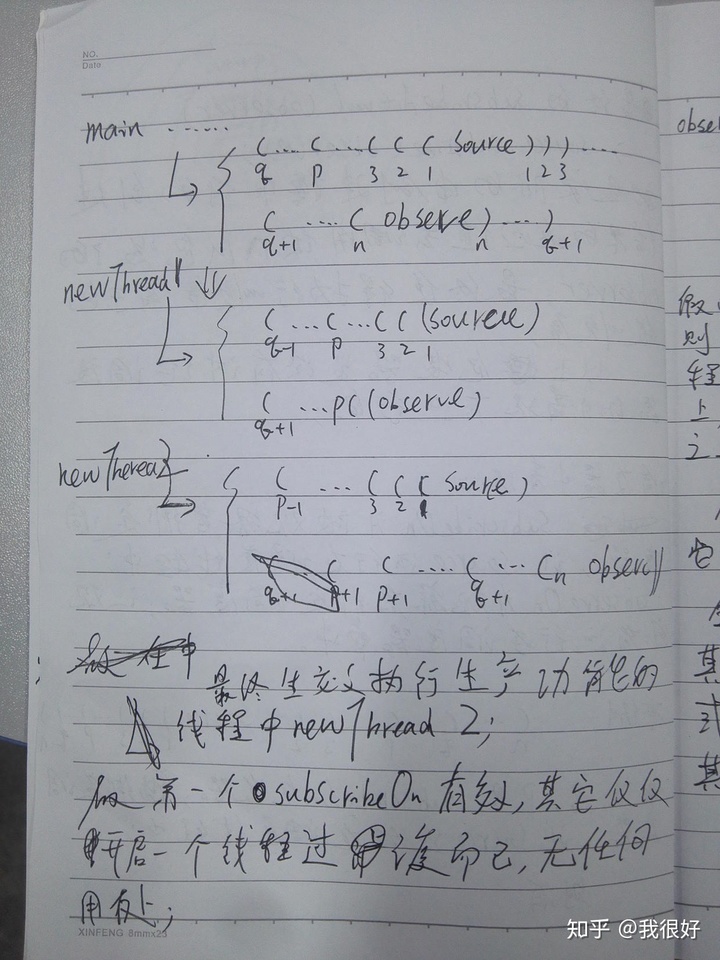 NO.
Date
main ······
( ··· ( ··· ( ( ( source ) ) ) ····
q p 3 2 1 1 2 3
( ···· ( observe ) ···· )
q+1 n n q+1
obser
newThread1
( ··· ( ··· ( ( (source)
q-1 p 3 2 1
( ··· p( (observe)
q+1
newThread2
( ··· ( ( ( source )
p-1 3 2 1
( ( ···· ( ··· (n observe))
p+1 p+1 q+1
最终在执行生产功能的
线程中newThread 2;
故第一个subscribeOn有效,其它仅仅
开启一个线程过渡而已,无任何
用处;
XINFENG 8mmx23
知乎 @我很好